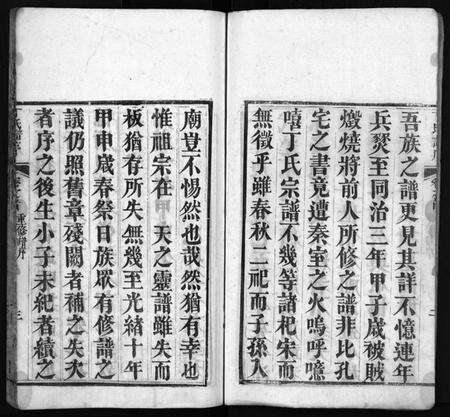 吾族之譜更見其詳不憶連年
兵燹至同治三年甲子歲被賊
燬燒將前人所修之譜非比孔
宅之書竟遭秦室之火嗚呼噫
嘻丁氏宗譜不幾等諸杞宋而
無徵乎雖春秋二祀而子孫入
廟豈不惕然也哉然猶有幸也
惟祖宗在天之靈譜雖失而
板猶存所失無幾至光緒十年
甲申歲春祭日族眾有修譜之
議仍照舊章殘闕者補之失次
者序之後生小子未紀者續之
重修譜序
三